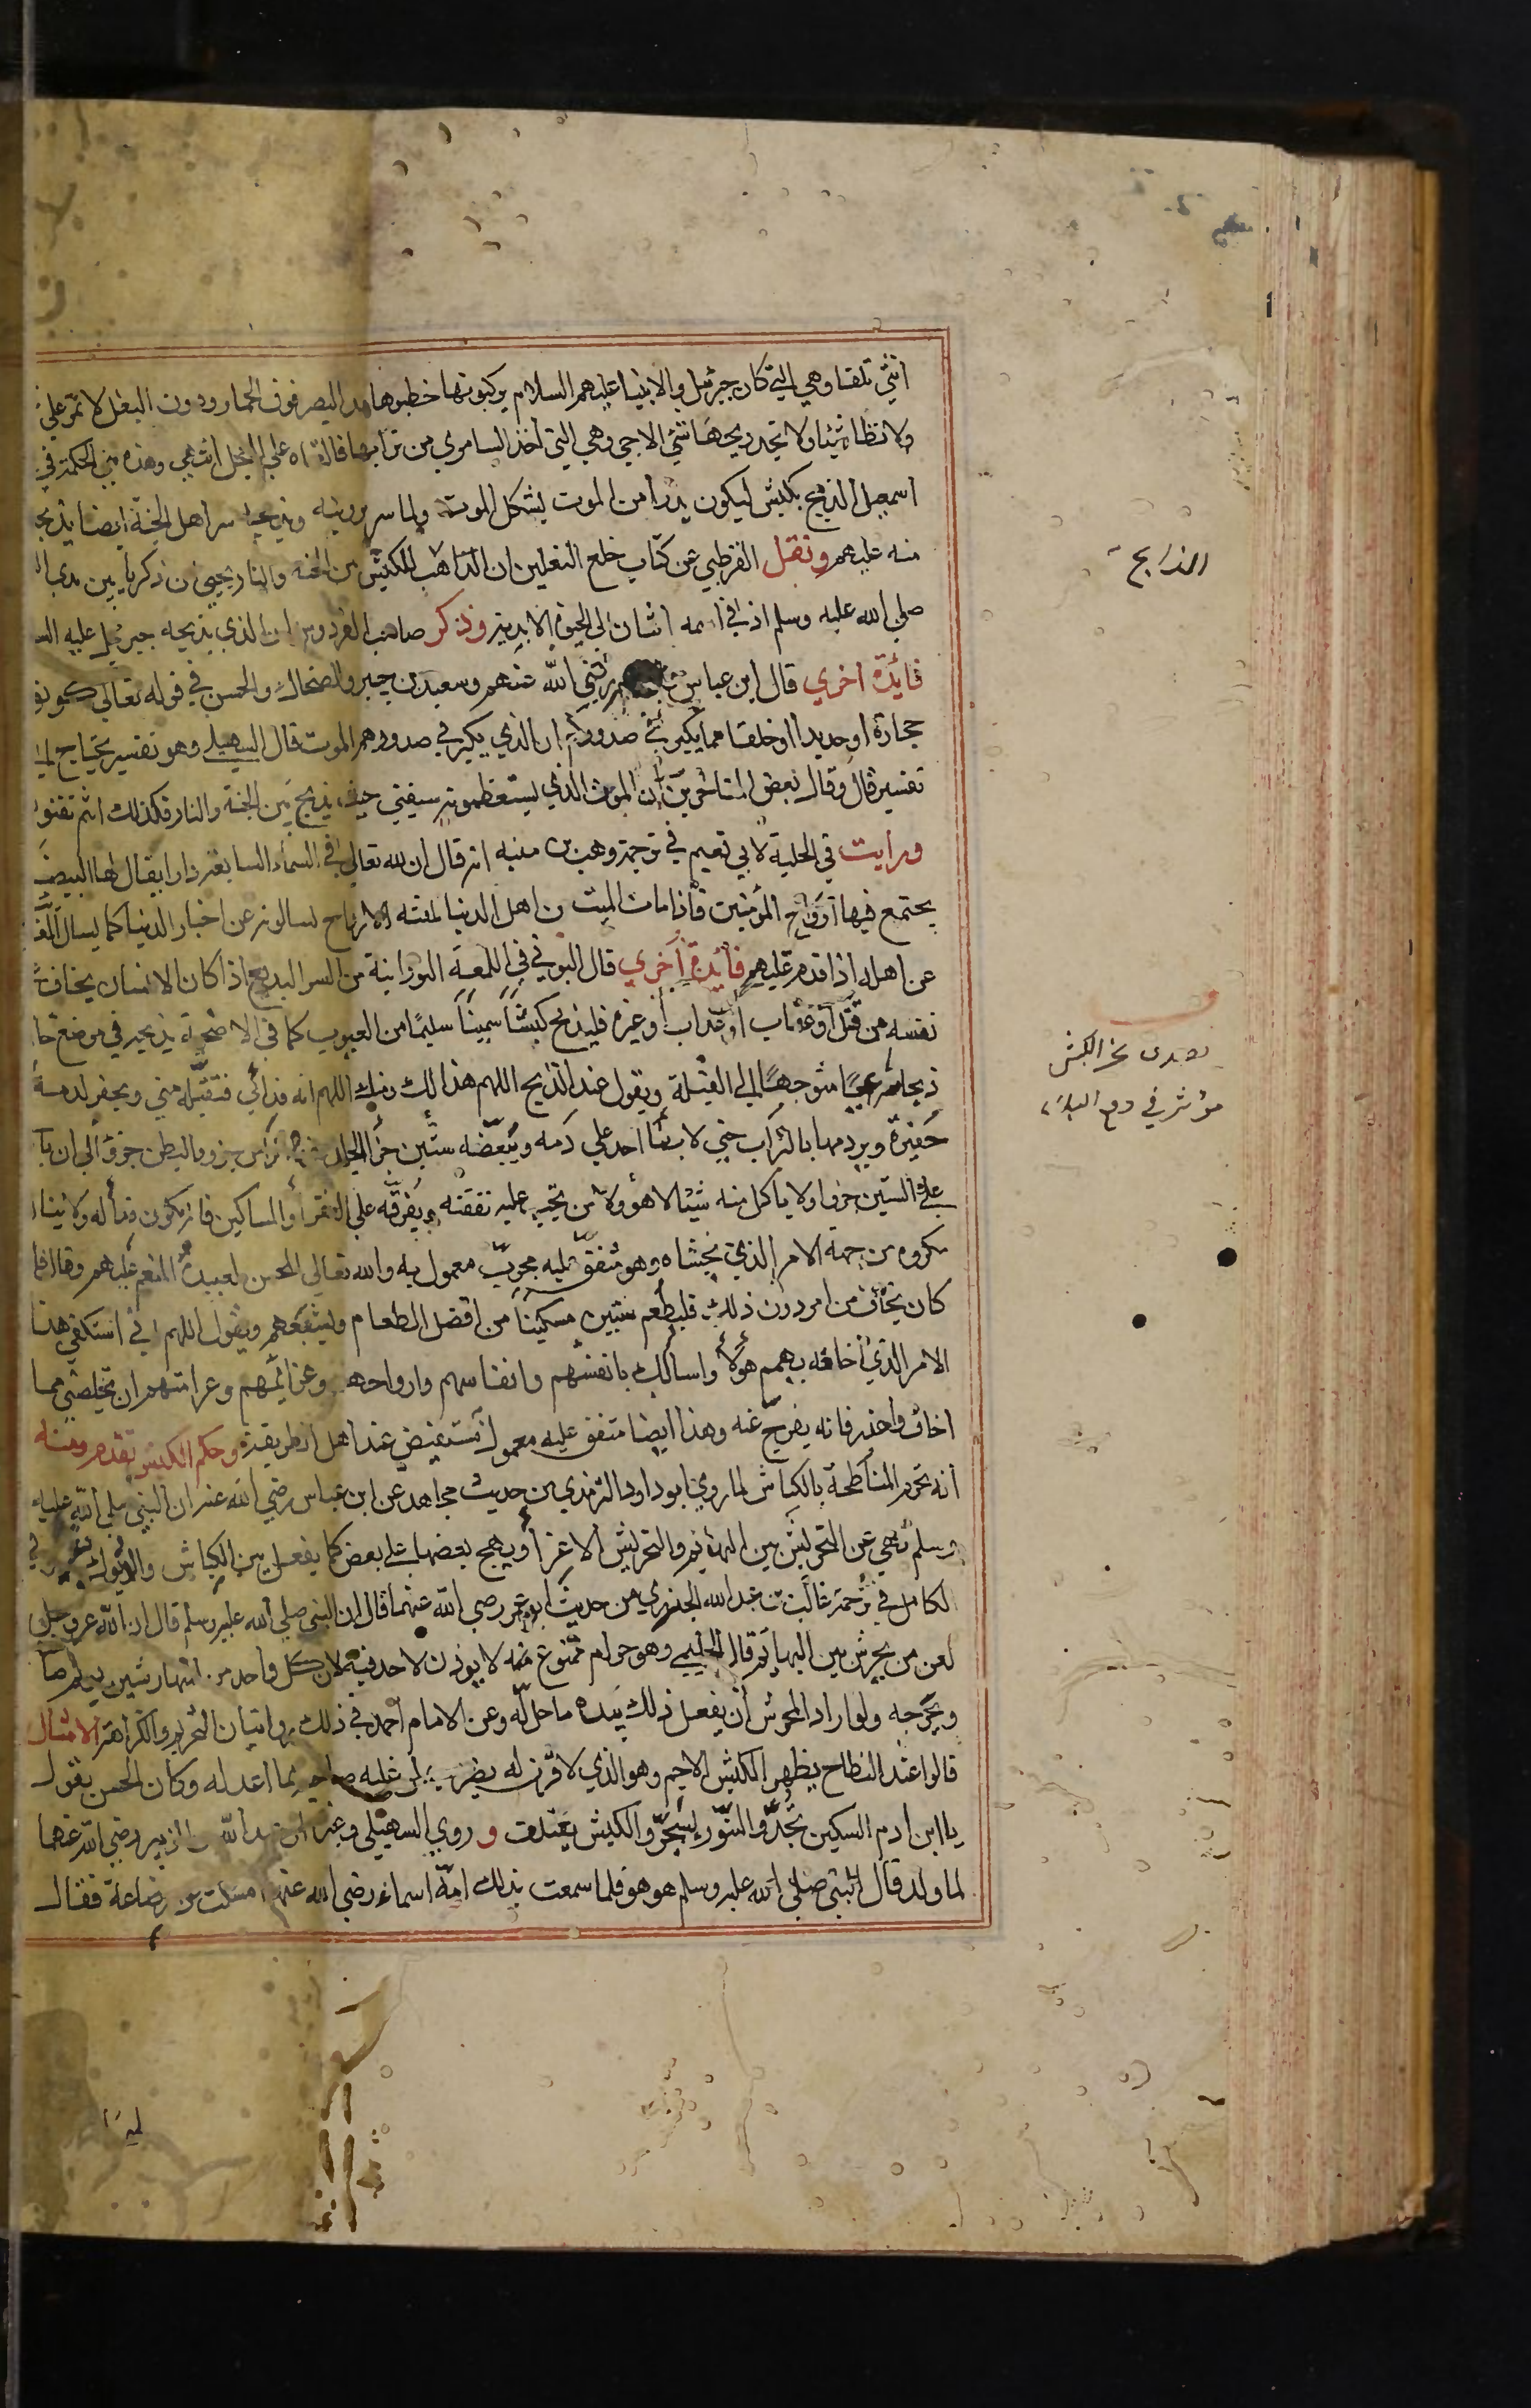 انثي تلقا وهي التي كان جبرئيل والانبيا عليهم السلام يركبونها خطوها مد البصر فوق الحمار ودون البغل لا تمر علي
ولا تطا شيئا ولا تجد ريحها شئ الا حيي وهي التي اخذ السامري من ترابها فالقاه علي العجل وهذه الحكمة في
اسمعيل الذبيح بكبش ليكون بدرا من الموت بشكل الموت ولما سر برويته وبذبحه سر اهل الجنة ايضا بذبح
منه عليهم ونقل القرطبي عن كتاب خلع النعلين ان الذابح للكبش بين الجنة والنار يحيي بن زكريا بين يدي ال
صلي الله عليه وسلم اذ في اسمه اشارة الي الحيوة الابدية وذكر صاحب الفردوس ان الذي يذبحه جبرئيل عليه الس
فائدة اخري قال ابن عباس رضي الله عنهم وسعيد بن جبير والضحاك والحسن في قوله تعالي كونو
حجارة او حديدا او خلقا مما يكبر في صدوركم ان الذي يكبر في صدورهم الموت قال السهيلي وهو تفسير يحتاج الي
تفسير قال وقال بعض المتاخرين ان الموت الذي يستعظمونه سيفني حين يذبح بين الجنة والنار فكذلك انتم تفنون
ورايت في الحلية لابي نعيم في ترجمة وهب بن منبه انه قال ان لله تعالي في السماء السابعة دارا يقال لها البيض
يجتمع فيها ارواح المؤمنين فاذا مات الميت من اهل الدنيا تلقته الارواح يسالونه عن اخبار الدنيا كما يسال الغ
عن اهله اذا قدم عليهم فائدة اخري قال البوني في اللمعة النورانية من السر البديع اذا كان الانسان يخاف
نفسه من قتل او عقاب او عذاب او غيره فليذبح كبشا سمينا سليما من العيوب كما في الاضحية يذبحه في موضع خا
ذبحا شرعيا متوجها الي القبلة ويقول عند الذبح اللهم هذا لك ومنك اللهم انه فدائي فتقبله مني ويحفر لدمه
حفيرة ويردمها بالتراب حتي لا يطا احد علي دمه ويبعضه ستين جزا الجلد جزو والراس جزو والبطن جزو الي ان يا
علي الستين جزوا ولا ياكل منه شيئا لا هو ولا من تجب عليه نفقته ويفرقه علي الفقرا والمساكين فانه يكون فدا له ولا يناله
مكروه من جهة الامر الذي يخشاه وهو متفق عليه مجرب معمول به والله تعالي المحسن لعبيده المنعم عليهم وقال فا
كان يخاف من امر دون ذلك فليطعم ستين مسكينا من افضل الطعام ويشبعهم ويقول اللهم اني استكفي هذا
الامر الذي اخافه بهمم هؤلاء واسالك بانفسهم وانفاسهم وارواحهم وعزائمهم ان تخلصني مما
اخاف واحذر فانه يفرج عنه وهذا ايضا متفق عليه معمول مستفيض عند اهل الطريقة وحكم الكبش تقدم ومنه
انه تحرم المناطحة بالكباش لما روي ابو داود والترمذي من حديث مجاهد عن ابن عباس رضي الله عنه ان النبي صلي الله عليه
وسلم نهي عن التحريش بين البهائم والتحريش الاغرا ويهيج بعضها علي بعض كما يفعل بين الكباش والديوك وفي
الكامل في ترجمة غالب بن عبد الله الجزري من حديث ابن عمر رضي الله عنهما قال ان النبي صلي الله عليه وسلم قال ان الله عز وجل
لعن من يحرش بين البهائم قال الحليمي وهو حرام ممنوع منه لا يوذن لاحد فيه لان كل واحد من المتهارشين يولم صا
ويجرحه ولو اراد المحرش ان يفعل ذلك بيده ما حل له وعن الامام احمد في ذلك روايتان التحريم والكراهة الامثال
قالوا عند النطاح يظهر الكبش الاجم وهو الذي لا قرن له يضرب لمن غلبه صاحبه بما اعد له وكان الحسن يقول
يا ابن ادم السكين تحد والتنور يسجر والكبش يعتلف و روي السهيلي وغيره ان عبد الله بن الزبير رضي الله عنهما
لما ولد قال النبي صلي الله عليه وسلم هو هو فلما سمعت بذلك امه اسماء رضي الله عنها امسكت عن رضاعه فقال
الذابح
نحر الكبش
مؤثر في دفع البلاء